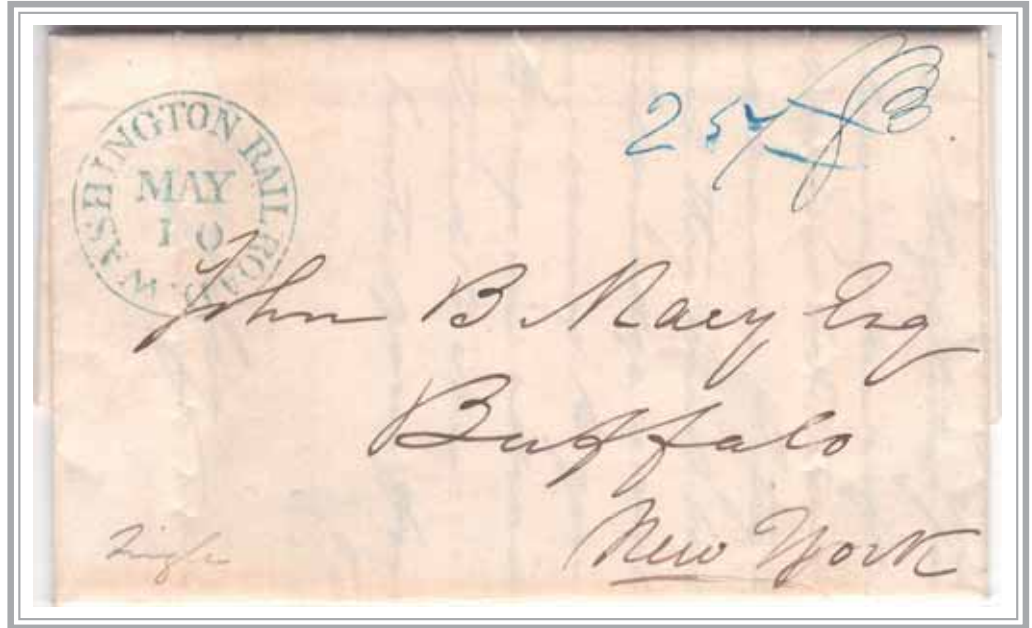 WASHINGTON RAIL-ROAD.
MAY
10
25
John B Macy Esq
Buffalo
New York
Single